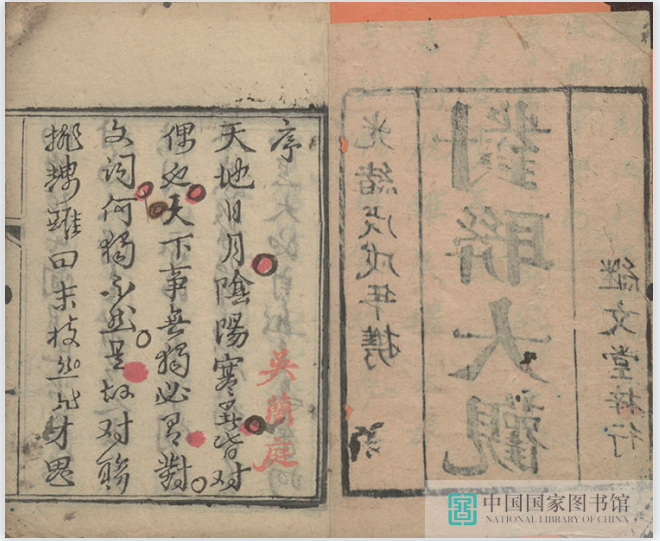 光緒戊戌年
對聯大觀
繼文堂梓行
序
天地日月陰陽寒暑皆对
偶也天下事無獨必有對
文词何獨不然是故对聯
排耦雖曰末技然非才思
吳庭
中国国家图书馆
NATIONAL LIBRARY OF CHINA